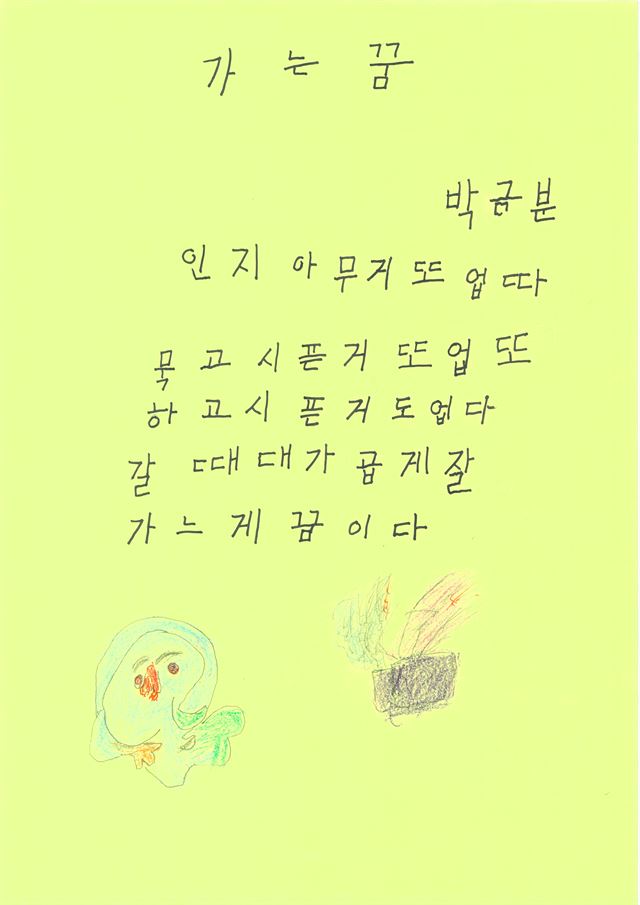 가는꿈
박금분
인지 아무거 또 업따
묵고 시픈거 또 업또
하고시 픈거도업다
갈 때대가 곱게잘
가느게 꿈이다